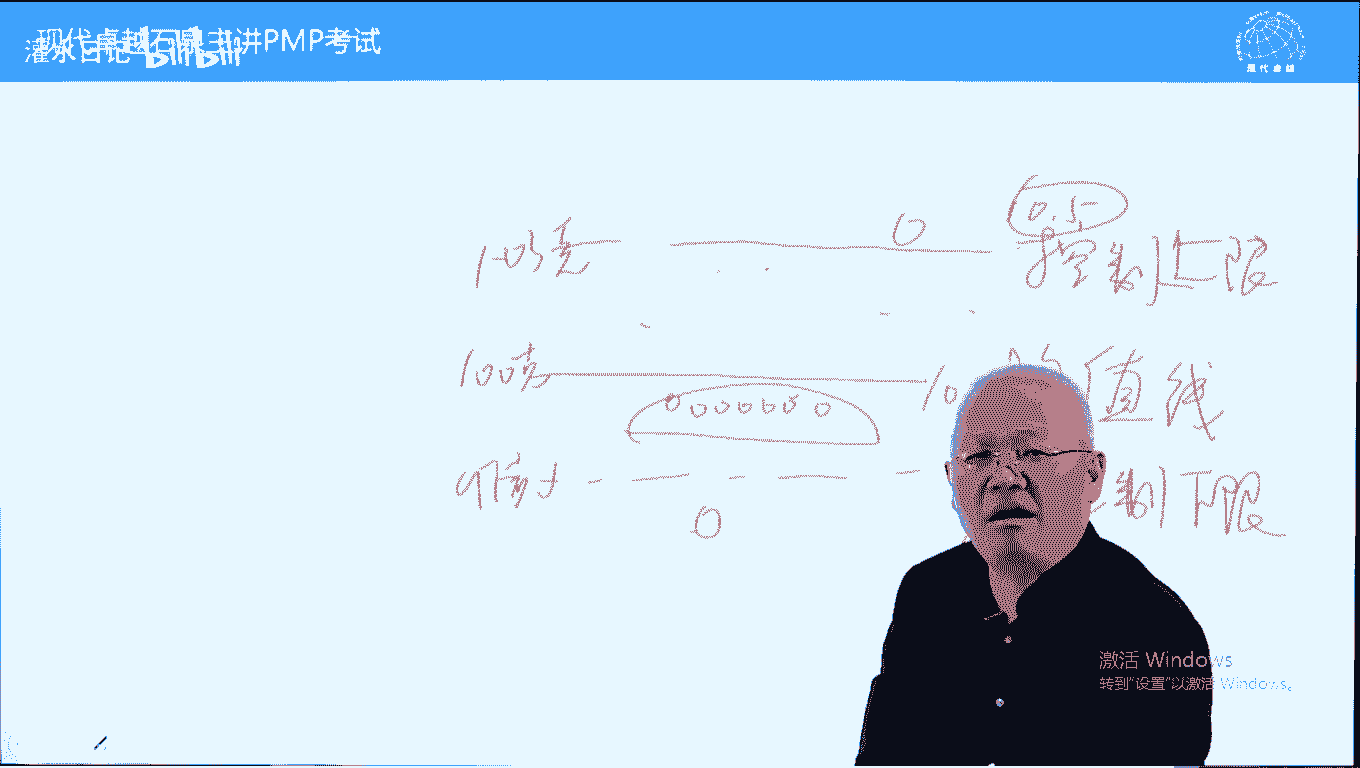 现代卓越石鼎主讲PMP考试
灌水日记 bilibili
现代卓越
0.5
103克 0 控制上限
100克 10 均值直线
0000000
97克 制下限
0
激活 Windows
转到"设置"以激活 Windows。